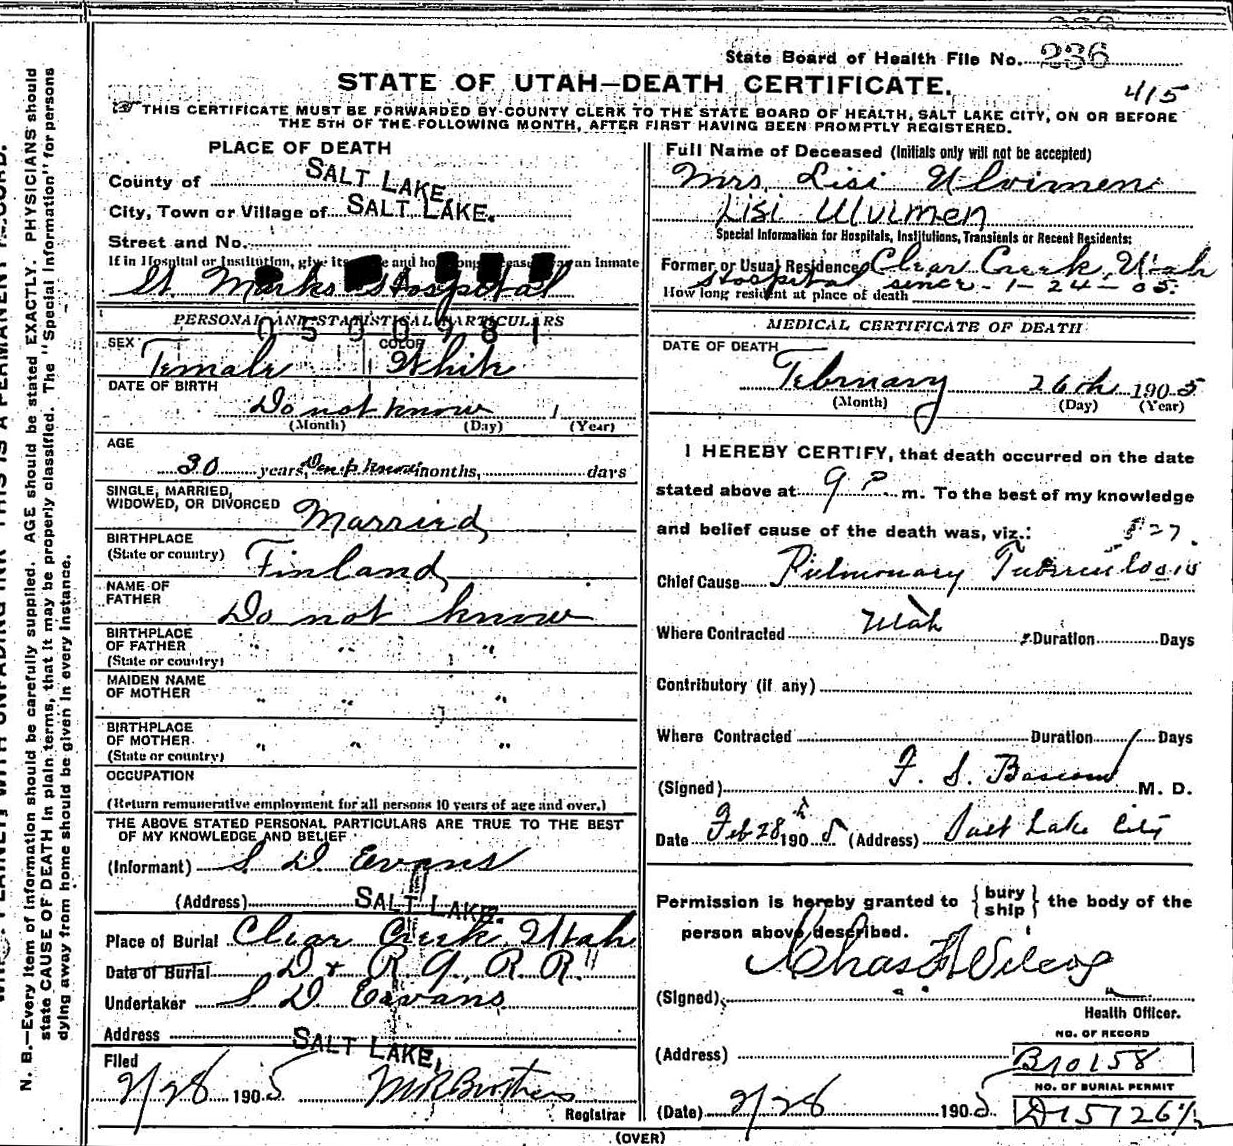 State Board of Health File No. 236
STATE OF UTAH—DEATH CERTIFICATE.
415
THIS CERTIFICATE MUST BE FORWARDED BY COUNTY CLERK TO THE STATE BOARD OF HEALTH, SALT LAKE CITY, ON OR BEFORE
THE 5TH OF THE FOLLOWING MONTH, AFTER FIRST HAVING BEEN PROMPTLY REGISTERED.
PLACE OF DEATH
County of SALT LAKE
City, Town or Village of SALT LAKE.
Street and No.
If in Hospital or Institution, give its
St. Marks Hospital
PERSONAL AND STATISTICAL PARTICULARS
0500981
SEX Female COLOR White
DATE OF BIRTH
Do not know 1
(Month) (Day) (Year)
AGE
30 years, months, days
SINGLE, MARRIED,
WIDOWED, OR DIVORCED Married
BIRTHPLACE
(State or country) Finland
NAME OF
FATHER Do not know
BIRTHPLACE
OF FATHER " " "
(State or country)
MAIDEN NAME
OF MOTHER " " "
BIRTHPLACE
OF MOTHER " " "
(State or country)
OCCUPATION
(Return remunerative employment for all persons 10 years of age and over.)
THE ABOVE STATED PERSONAL PARTICULARS ARE TRUE TO THE BEST
OF MY KNOWLEDGE AND BELIEF
(Informant) S. D. Evans
(Address) SALT LAKE.
Place of Burial Clear Creek, Utah
Date of Burial D & R G. R. R.
Undertaker S D Evans
Address SALT LAKE,
Filed
2/28 1905
Registrar
Full Name of Deceased (Initials only will not be accepted)
Mrs. Lisi Ulvimen
LISI ULVIMEN
Special Information for Hospitals, Institutions, Transients or Recent Residents:
Former or Usual Residence Clear Creek, Utah
Hospital since - 1-24-05.
How long resident at place of death
MEDICAL CERTIFICATE OF DEATH
DATE OF DEATH
February 26th 1905
(Month) (Day) (Year)
I HEREBY CERTIFY, that death occurred on the date
stated above at 9 P. m. To the best of my knowledge
and belief cause of the death was, viz.:
Chief Cause Pulmonary Tuberculosis
Where Contracted Utah Duration Days
Contributory (if any)
Where Contracted Duration Days
(Signed) F. S. Bascom M. D.
Date Feb 28th 1905 (Address) Salt Lake City
Permission is hereby granted to {bury ship} the body of the
person above described.
(Signed) Chas F Wilcox
Health Officer.
NO. OF RECORD
(Address) B10158
NO. OF BURIAL PERMIT
(Date) 2/28 1905 D15126½
(OVER)
N. B.—Every item of information should be carefully supplied. AGE should be stated EXACTLY. PHYSICIANS should
state CAUSE OF DEATH in plain terms, that it may be properly classified. The "Special Information" for persons
dying away from home should be given in every instance.